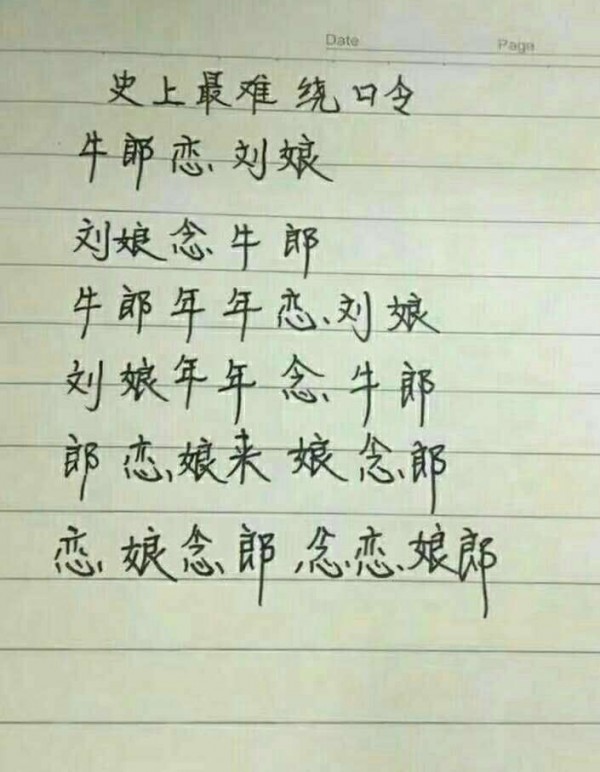 Date Page
史上最难绕口令
牛郎恋刘娘
刘娘念牛郎
牛郎年年恋刘娘
刘娘年年念牛郎
郎恋娘来娘念郎
恋娘念郎念恋娘郎